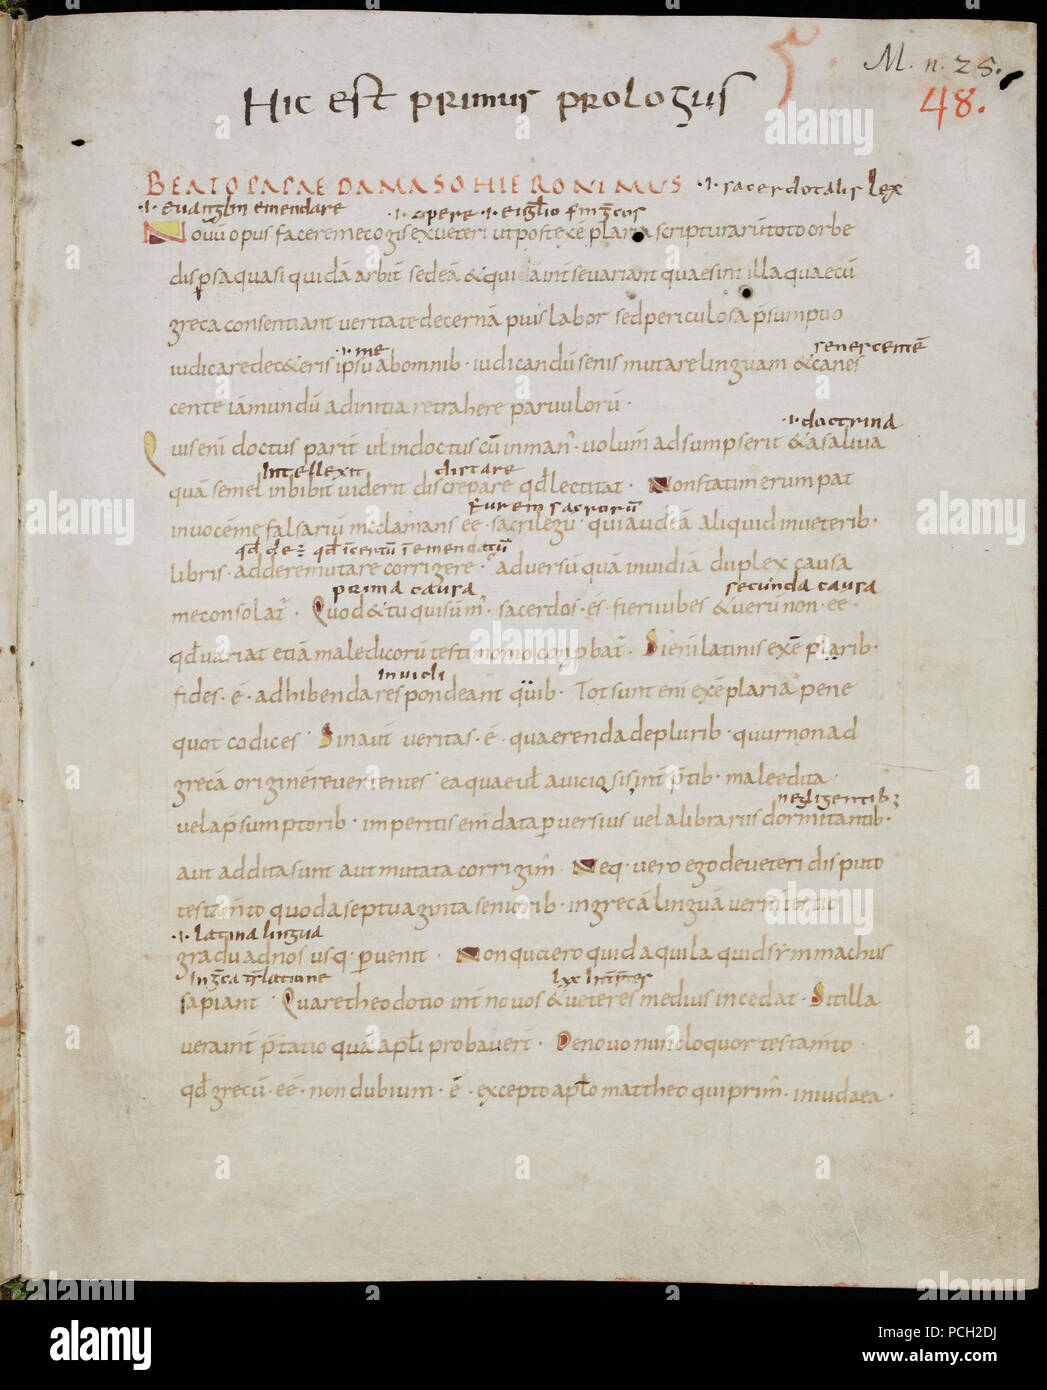 M. n. 25.
48.
Hic est primus prologus
BEATO PAPAE DAMASO HIERONIMUS ·i· sacerdotalis lex
·i· euangłın emendare ·i· opere ·i·
Nouū opus facere me cogis ex ueteri ut post exēplaria scripturarū toto orbe
dispsa quasi quidā arbiť sedeā & quia int se uariant quae sint illa quae cū
greca consentiant ueritate decernā pius labor sed periculosa p̄sumptio
·i· me senescentē
iudicare de c&eris ipsū ab omnib· iudicandū senis mutare linguam & canes
centē iā mundū ad initia retrahere paruulorū·
·i· doctrina
Quis eni doctus pariť uł indoctus cū in man᾽· uolum̄ adsumpserit & a saliua
intellexit distare
quā semel inbibit uiderit discrepare qđ lectitat· Non statim erumpat
furem sacrorū
in uocē me falsariū me clamans eē· sacrilegū· qui audeā aliquid in ueterib·
qđ dē÷ qđ īcertū ī emendatū
libris· addere mutare corrigere· aduersū quā inuidiā duplex causa
prima causa secunda causa
me consolat̄· Quod & tu qui sum̄᾽· sacerdos· es· fieri iubes & uerū non· eē·
qđ uariat etiā maledicorū testimonio conpbat̄· Si eni latinis exēplarib·
inuidi
fides· ē· adhibenda respondeant quib· Tot sunt eni exēplaria pene
quot codices· Sin aut̄ ueritas· ē· quaerenda de plurib· quur non ad
grecā originē reuertentes ea quae uł a uiciosis int̄p̄tib· male edita·
negligentib;
uel a p̄sumptorib· imperitis eni data puersius uel a librariis dormitantib·
aut addita sunt aut mutata corrigim̄· Neq· uero ego de ueteri disputo
testam̄to quod a septuaginta seniorib· in grecā linguā uersū tertio
·i· latina lingua
gradu ad nos usq· puenit· Non quero quid aquila quid symmachus
in ḡca t̄rlatione lxx int̄p̄tes
sapiant· Quare theodotio int̄ nouos & ueteres medius incedat· Sit illa
uera int̄p̄tatio quā apłi probauer̄t· De nouo nunc loquor testam̄to·
qđ grecū· eē· non dubium· ē· excepto apło mattheo qui prim̄· in iudaea·
alamy
Image ID: PCH2DJ
www.alamy.com